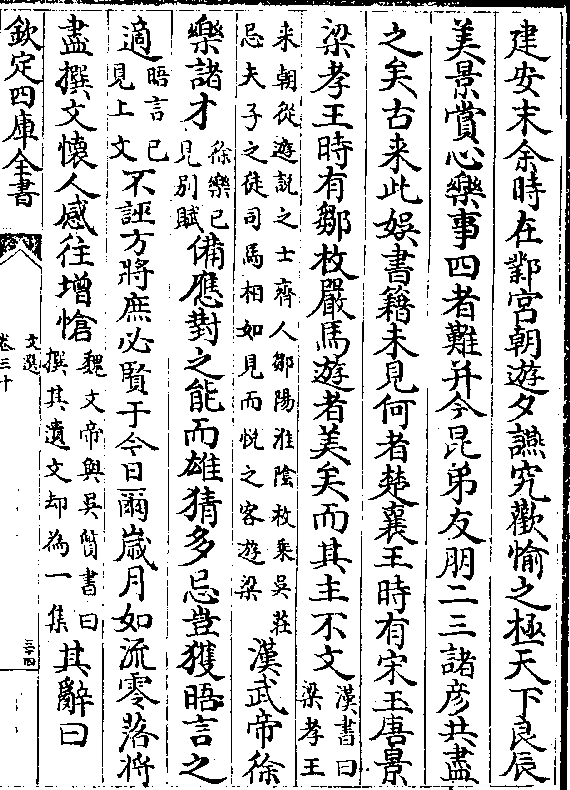 建安末余時在鄴宮朝遊夕讌究歡愉之極天下良辰
美景賞心樂事四者難并今昆弟友朋二三諸彦共盡
之矣古来此娯書籍未見何者楚襄王時有宋玉唐景
梁孝王時有鄒枚嚴馬遊者美矣而其主不文漢書曰梁孝王
来朝從遊說之士齊人鄒陽淮陰枚乗吳莊忌夫子之徒司馬相如見而悦之客遊梁漢武帝徐
樂諸才徐樂已見别賦備應對之能而雄猜多忌豈獲晤言之
適晤言已見上文不誣方將庶必賢于今日爾嵗月如流零落将
盡撰文懷人感往增愴魏文帝與吳質書曰撰其遺文却為一集其辭曰
欽定四庫全書
文選
卷三十
三十四